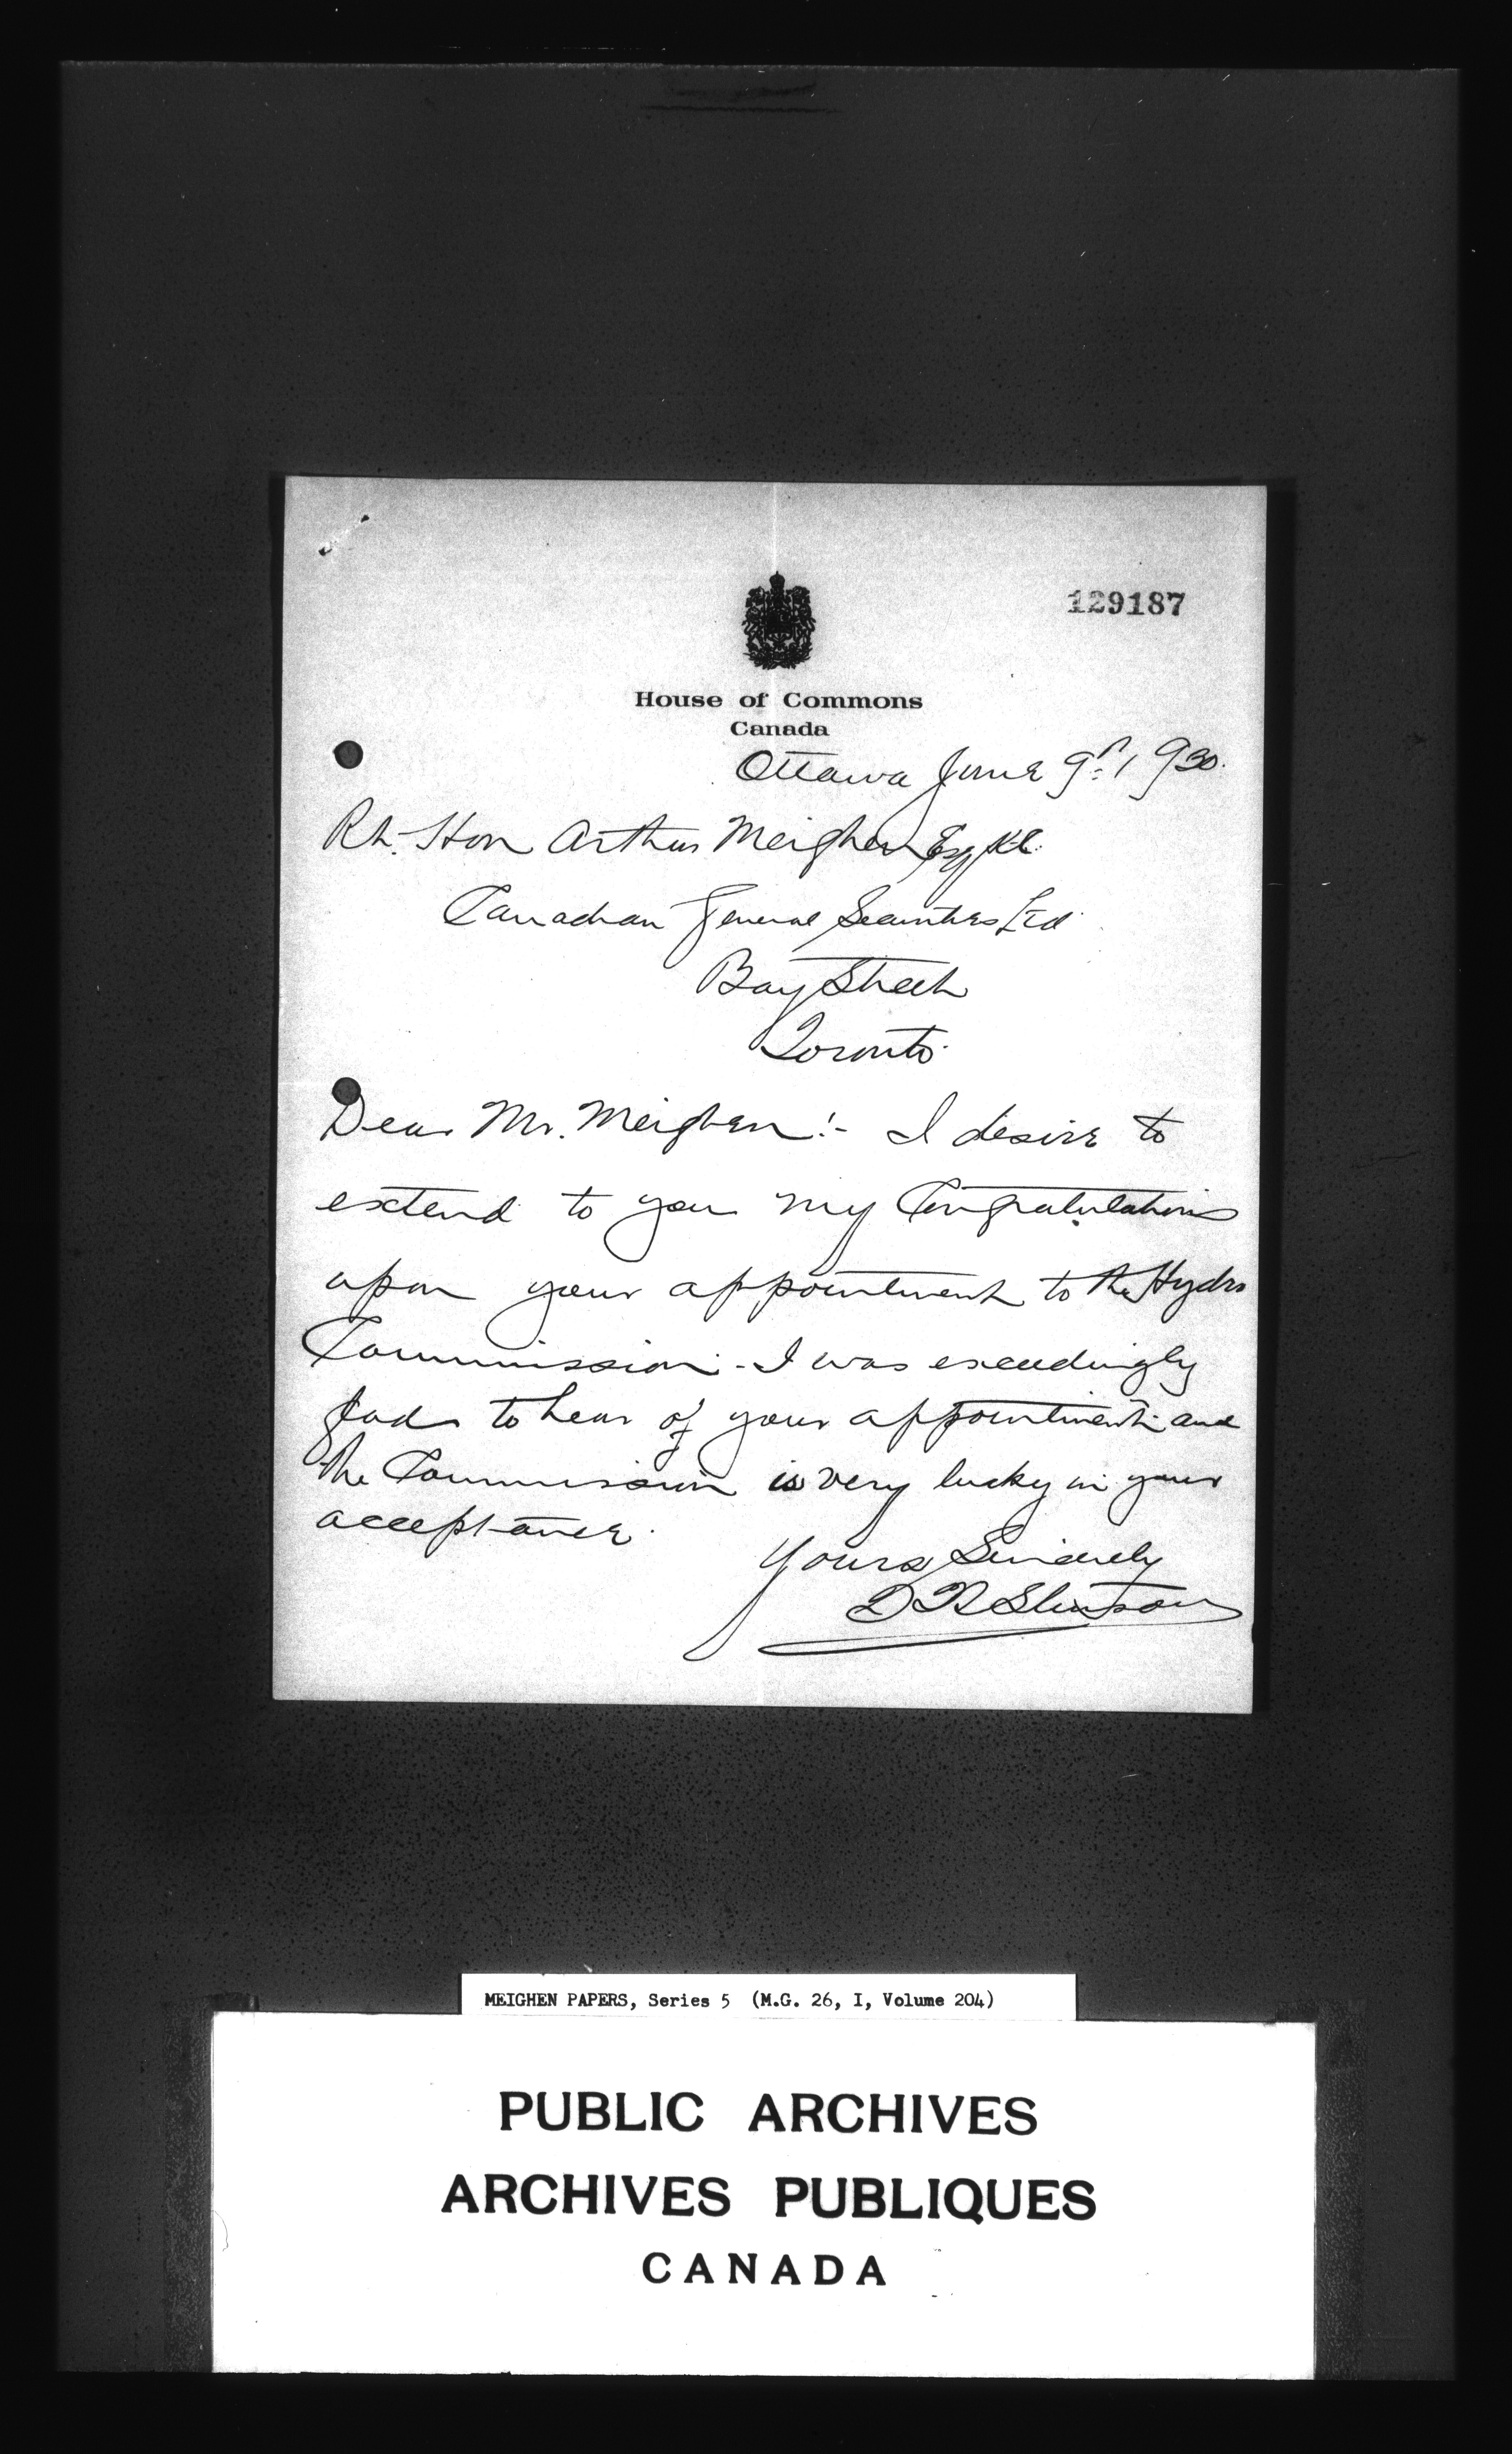 129187
House of Commons
Canada
Ottawa June 9th 1930.
Rt. Hon Arthur Meighen Esq K.C.
Canadian General Securities Ltd
Bay Street
Toronto.
Dear Mr. Meighen:- I desire to
extend to you my Congratulations
upon your appointment to the Hydro
Commission. - I was exceedingly
glad to hear of your appointment and
the Commission is very lucky in your
acceptance.
Yours Sincerely
MEIGHEN PAPERS, Series 5 (M.G. 26, I, Volume 204)
PUBLIC ARCHIVES
ARCHIVES PUBLIQUES
CANADA